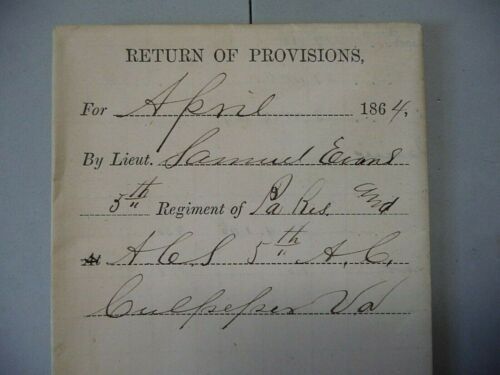 RETURN OF PROVISIONS,
For April 1864,
By Lieut. Samuel Evans
5th Regiment of Pa Res. and
At A C S 5th A. C.
Culpeper Va